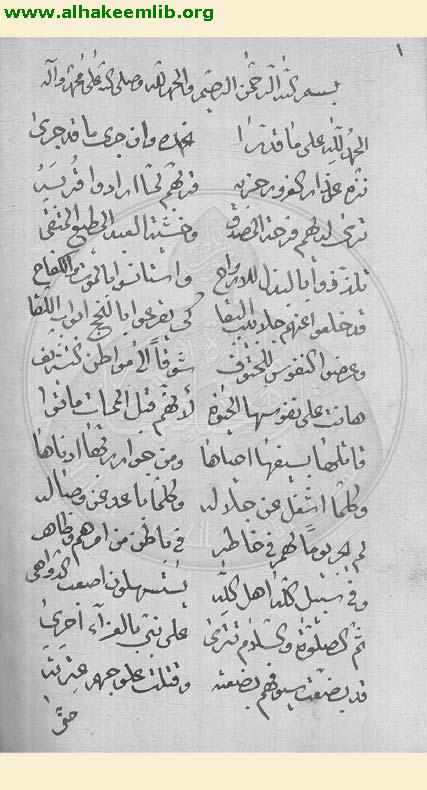 www.alhakeemlib.org
١
بسم الله الرحمن الرحيم والحمد لله وصلى الله على محمد وآله
الحمد لله على ما قدرا نحمده وان جرى ما قد جرى
قربهم لما ارادوا قربه
ترى لديهم فرحة المصدق وخشية العبد المطيع المتقى
تلذذوا بالبذل للارواح واستانسوا بالموت واللقاح
قد خلعوا عنهم جلابيب البقا كى يقرعوا بالنجح ابواب اللقا
وعرضوا النفوس للحتوف شوقا الى مواطن
هانت على نفوسها الحيوة لأنهم قبل الممات ماتوا
قاتلها بسيفها احياها ومن جوار ربها ادناها
وكلما اشتغل عن جلاله وكلما باعد عن وصاله
لم يجر يوما لهم فى خاطر فى باطن من امرهم وظاهر
وفى سبيل الله اهل الله يستسهلون اصعب الدواهى
ثم الصلوة والسلام تترى على بنى الزهراء اخرى
قد بضعت سيوفهم بضعته وقتلت علوجهم عترته
حتى